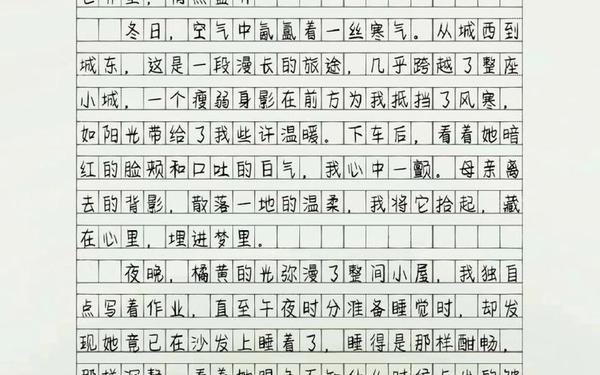 冬日，空气中氤氲着一丝寒气。从城西到
城东，这是一段漫长的旅途，几乎跨越了整座
小城，一个瘦弱身影在前方为我抵挡了风寒，
如阳光带给了我些许温暖。下车后，看着她暗
红的脸颊和口吐的白气，我心中一颤。母亲离
去的背影，散落一地的温柔，我将它拾起，藏
在心里，埋进梦里。
夜晚，橘黄的光弥漫了整间小屋，我独自
点写着作业，直至午夜时分准备睡觉时，却发
现她竟已在沙发上睡着了，睡得是那样酣畅，